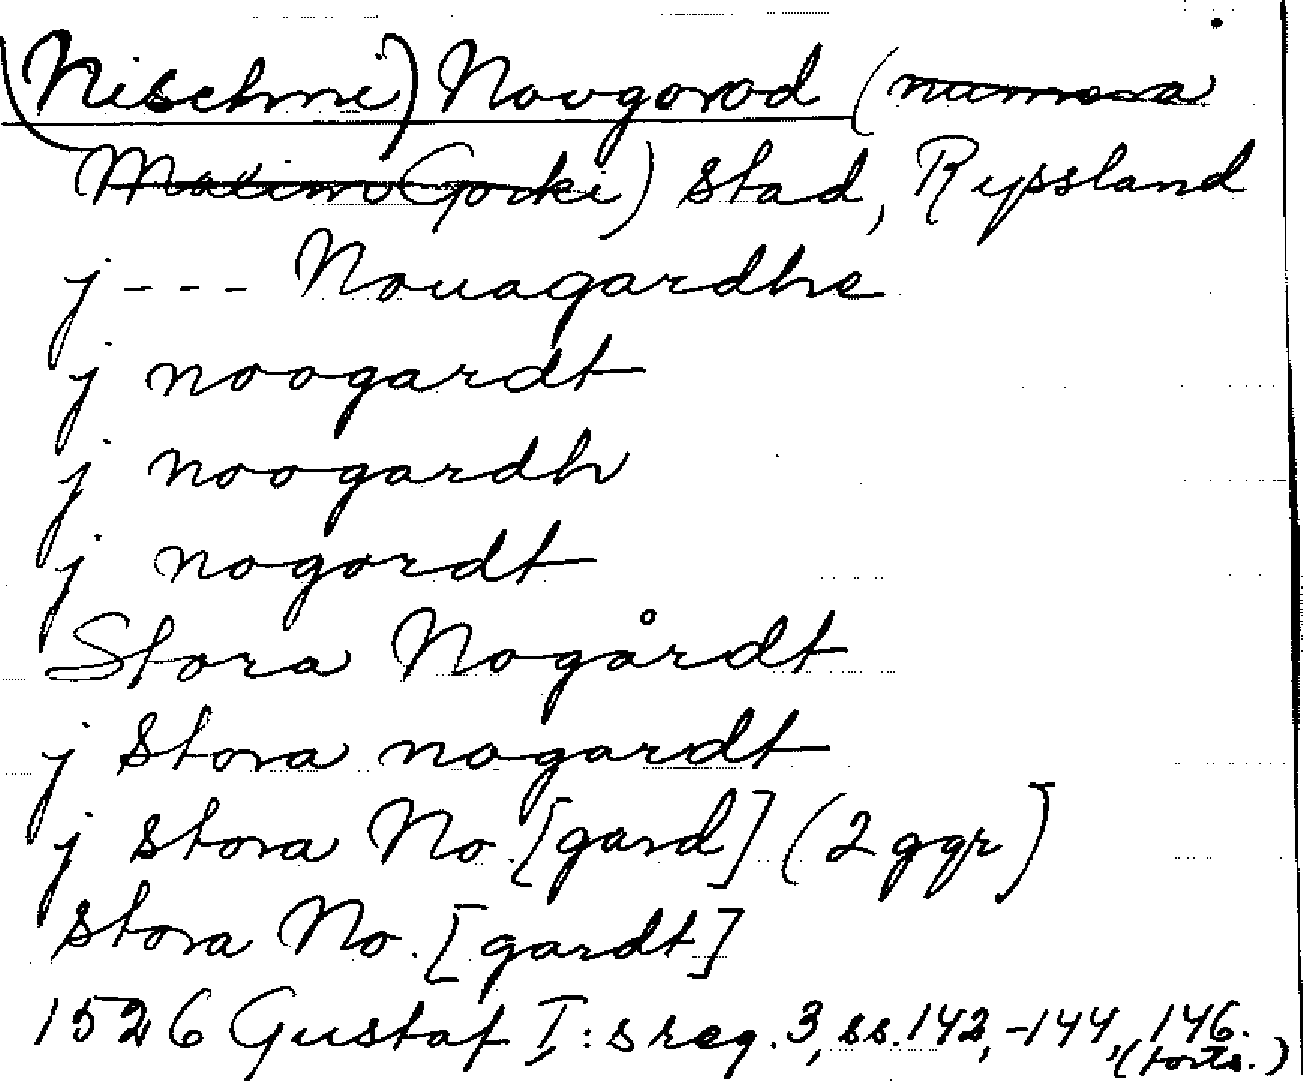 (Nischni) Novgorod (numera
Maxim Gorki) stad, Ryssland
j --- Nouagardhe
j noogardt
j noogardh
j nogordt
Stora Nogårdt
j Stora nogardt
j stora No [gard] (2 ggr)
stora No. [gardt]
1526 Gustaf I:s reg. 3, ss. 142, -144, 146.
(forts.)